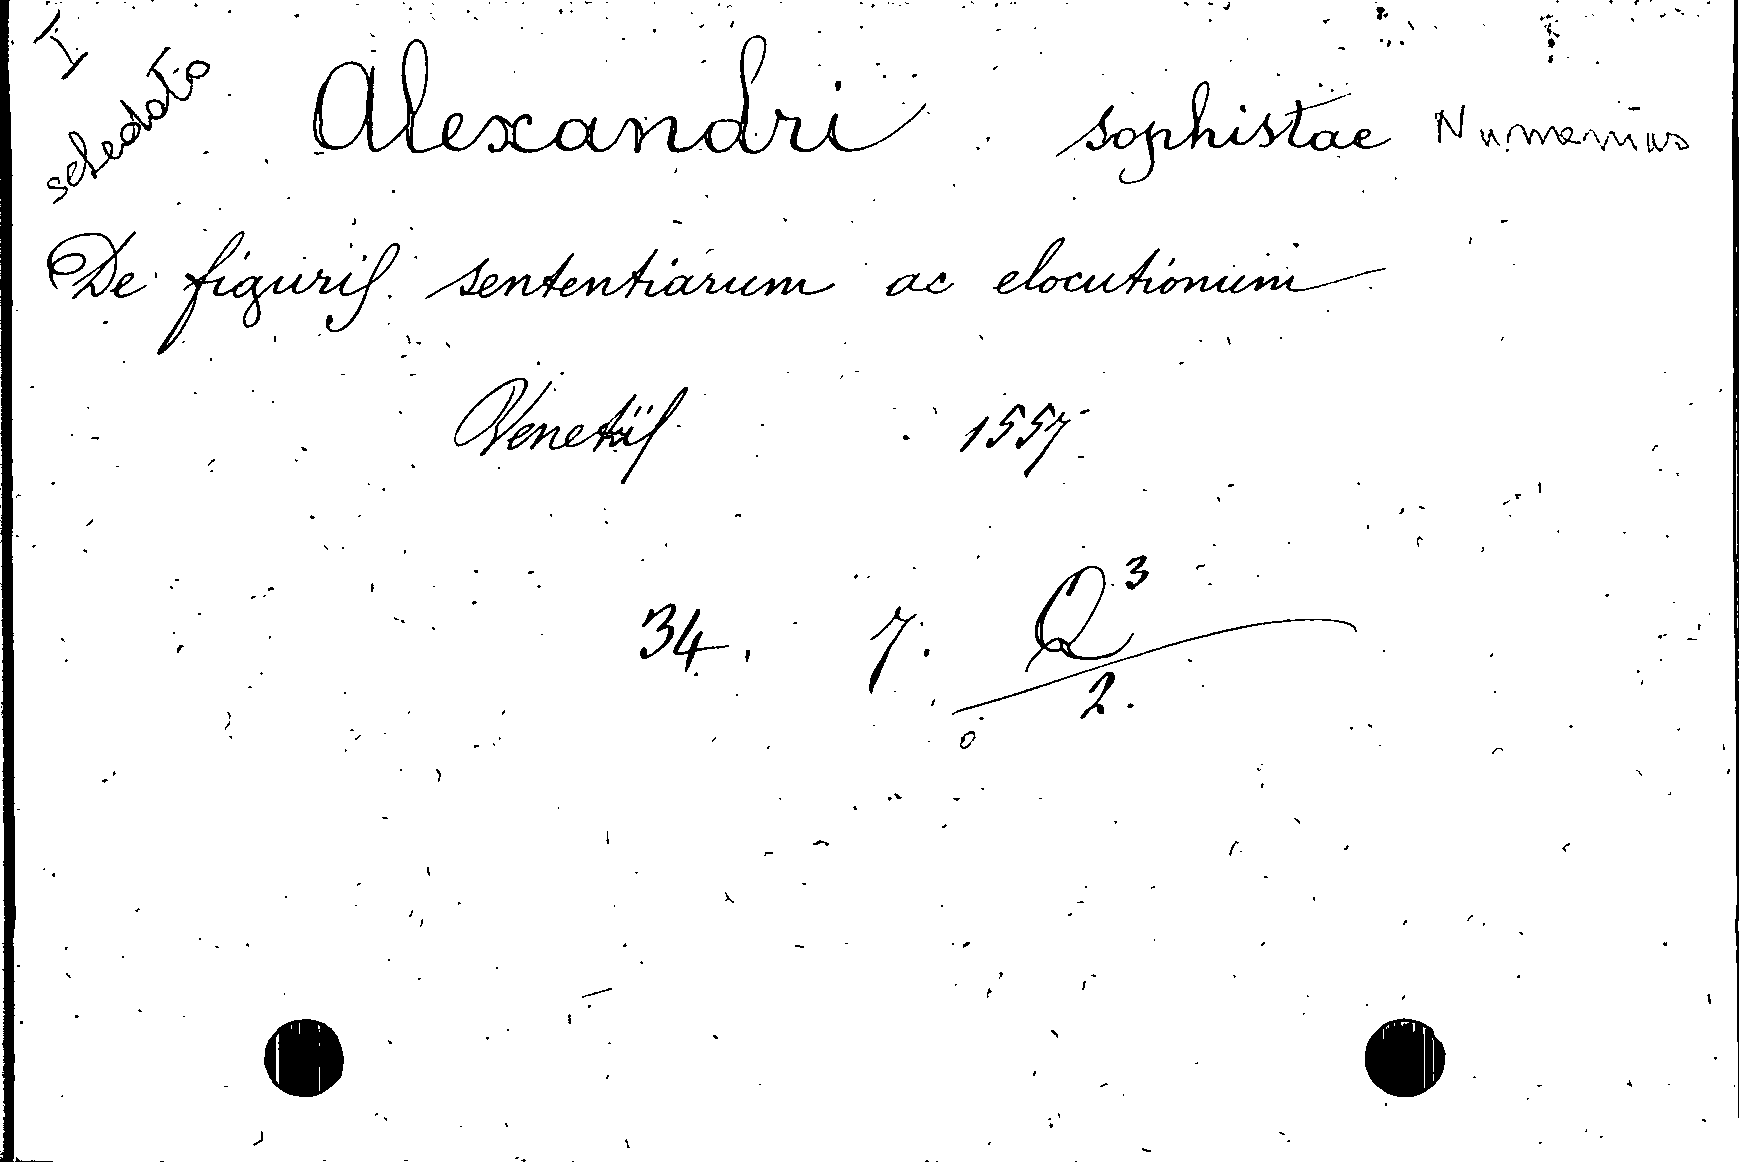 I
schedato
Alexandri sophistae Numenius
De figuris sententiarum ac elocutionum
Venetiis 1557
34. 7. Q³
2.